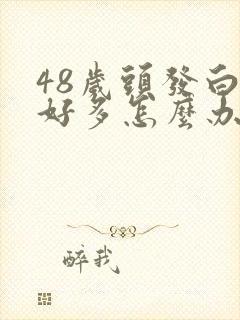 48歲頭發白
好多怎麼办
醉我